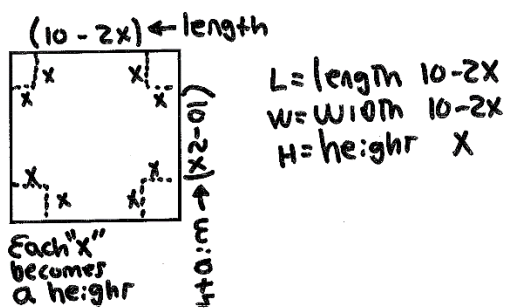 (10 - 2x) ← length
x
x
x
x
(10-2x) ←
x
x
x
x
Each "x"
becomes
a height
L = length 10-2x
W = width 10-2x
H = height x